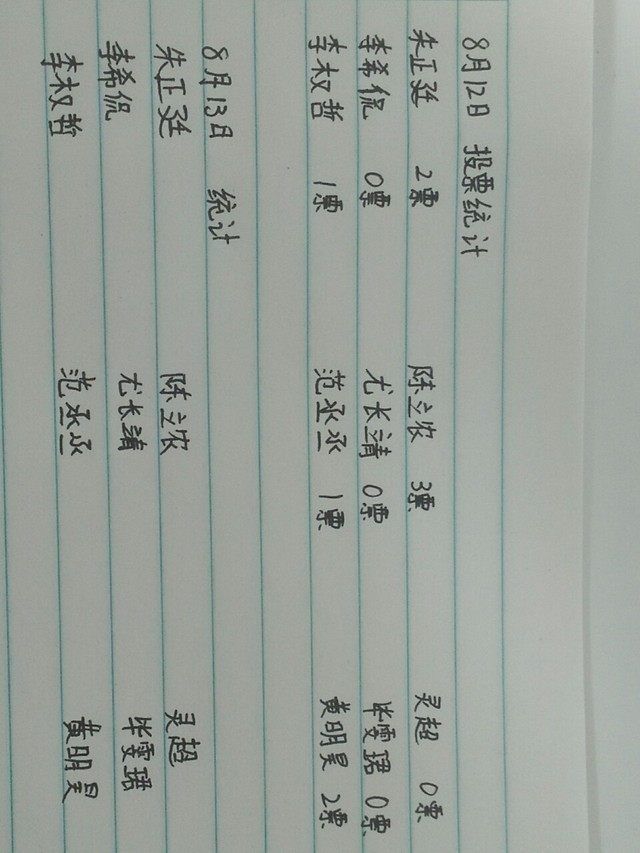 8月12日 投票统计
朱正廷 2票 陈立农 3票 灵超 0票
李希侃 0票 尤长靖 0票 毕雯珺 0票
李权哲 1票 范丞丞 1票 黄明昊 2票
8月13日 统计
朱正廷 陈立农 灵超
李希侃 尤长靖 毕雯珺
李权哲 范丞丞 黄明昊